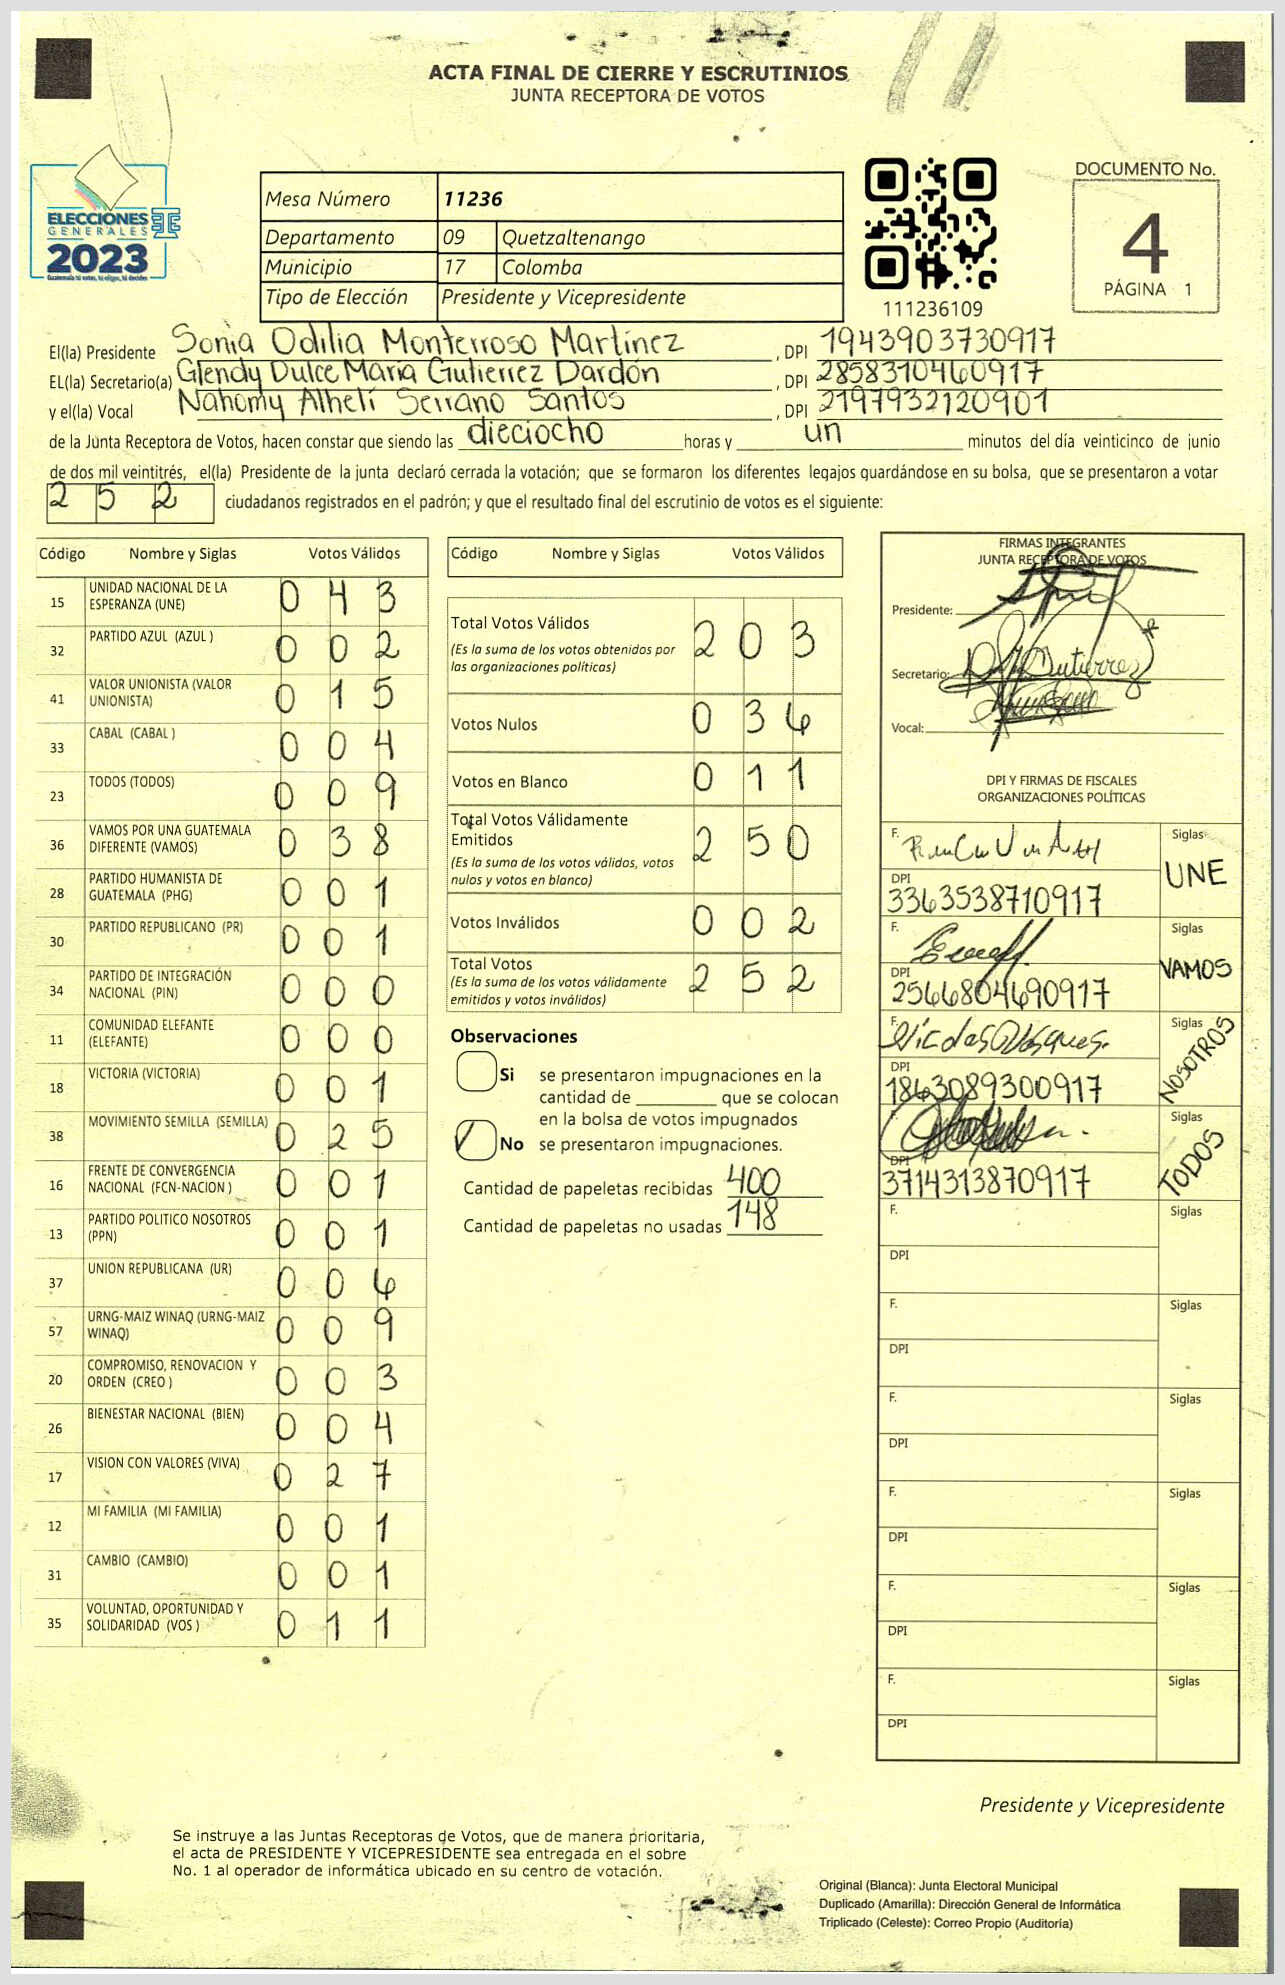 ACTA FINAL DE CIERRE Y ESCRUTINIOS
JUNTA RECEPTORA DE VOTOS
ELECCIONES
GENERALES
2023
Guatemala tú votas, tú eliges, tú decides
Mesa Número 11236
Departamento 09 Quetzaltenango
Municipio 17 Colomba
Tipo de Elección Presidente y Vicepresidente
111236109
DOCUMENTO No.
4
PÁGINA 1
El(la) Presidente Sonia Odilia Monterroso Martínez, DPI 1943903730917
EL(la) Secretario(a) Glendy Dulce María Gutierrez Dardón, DPI 2858310460917
y el(la) Vocal Nahomy Alhelí Serrano Santos, DPI 2197932120901
de la Junta Receptora de Votos, hacen constar que siendo las dieciocho horas y un minutos del día veinticinco de junio
de dos mil veintitrés, el(la) Presidente de la junta declaró cerrada la votación; que se formaron los diferentes legajos guardándose en su bolsa, que se presentaron a votar
252 ciudadanos registrados en el padrón; y que el resultado final del escrutinio de votos es el siguiente:
Código Nombre y Siglas Votos Válidos
15 UNIDAD NACIONAL DE LA ESPERANZA (UNE) 0 4 3
32 PARTIDO AZUL (AZUL ) 0 0 2
41 VALOR UNIONISTA (VALOR UNIONISTA) 0 1 5
33 CABAL (CABAL ) 0 0 4
23 TODOS (TODOS) 0 0 9
36 VAMOS POR UNA GUATEMALA DIFERENTE (VAMOS) 0 3 8
28 PARTIDO HUMANISTA DE GUATEMALA (PHG) 0 0 1
30 PARTIDO REPUBLICANO (PR) 0 0 1
34 PARTIDO DE INTEGRACIÓN NACIONAL (PIN) 0 0 0
11 COMUNIDAD ELEFANTE (ELEFANTE) 0 0 0
18 VICTORIA (VICTORIA) 0 0 1
38 MOVIMIENTO SEMILLA (SEMILLA) 0 2 5
16 FRENTE DE CONVERGENCIA NACIONAL (FCN-NACION ) 0 0 1
13 PARTIDO POLITICO NOSOTROS (PPN) 0 0 1
37 UNION REPUBLICANA (UR) 0 0 6
57 URNG-MAIZ WINAQ (URNG-MAIZ WINAQ) 0 0 9
20 COMPROMISO, RENOVACION Y ORDEN (CREO ) 0 0 3
26 BIENESTAR NACIONAL (BIEN) 0 0 4
17 VISION CON VALORES (VIVA) 0 2 7
12 MI FAMILIA (MI FAMILIA) 0 0 1
31 CAMBIO (CAMBIO) 0 0 1
35 VOLUNTAD, OPORTUNIDAD Y SOLIDARIDAD (VOS ) 0 1 1
Código Nombre y Siglas Votos Válidos
Total Votos Válidos 2 0 3
(Es la suma de los votos obtenidos por
las organizaciones políticas)
Votos Nulos 0 3 6
Votos en Blanco 0 1 1
Total Votos Válidamente
Emitidos 2 5 0
(Es la suma de los votos válidos, votos
nulos y votos en blanco)
Votos Inválidos 0 0 2
Total Votos 2 5 2
(Es la suma de los votos válidamente
emitidos y votos inválidos)
Observaciones
Si se presentaron impugnaciones en la
cantidad de ________ que se colocan
en la bolsa de votos impugnados
No se presentaron impugnaciones.
Cantidad de papeletas recibidas 400
Cantidad de papeletas no usadas 148
FIRMAS INTEGRANTES
JUNTA RECEPTORA DE VOTOS
Presidente:
Secretario: Gutierrez
Vocal:
DPI Y FIRMAS DE FISCALES
ORGANIZACIONES POLÍTICAS
F. Siglas UNE
DPI 3363538710917
F. Siglas VAMOS
DPI 2566804690917
F. Siglas NOSOTROS
DPI 1863089300917
Siglas TODOS
DPI 3714313870917
F. Siglas
DPI
F. Siglas
DPI
F. Siglas
DPI
F. Siglas
DPI
F. Siglas
DPI
F. Siglas
DPI
Presidente y Vicepresidente
Se instruye a las Juntas Receptoras de Votos, que de manera prioritaria,
el acta de PRESIDENTE Y VICEPRESIDENTE sea entregada en el sobre
No. 1 al operador de informática ubicado en su centro de votación.
Original (Blanca): Junta Electoral Municipal
Duplicado (Amarilla): Dirección General de Informática
Triplicado (Celeste): Correo Propio (Auditoría)